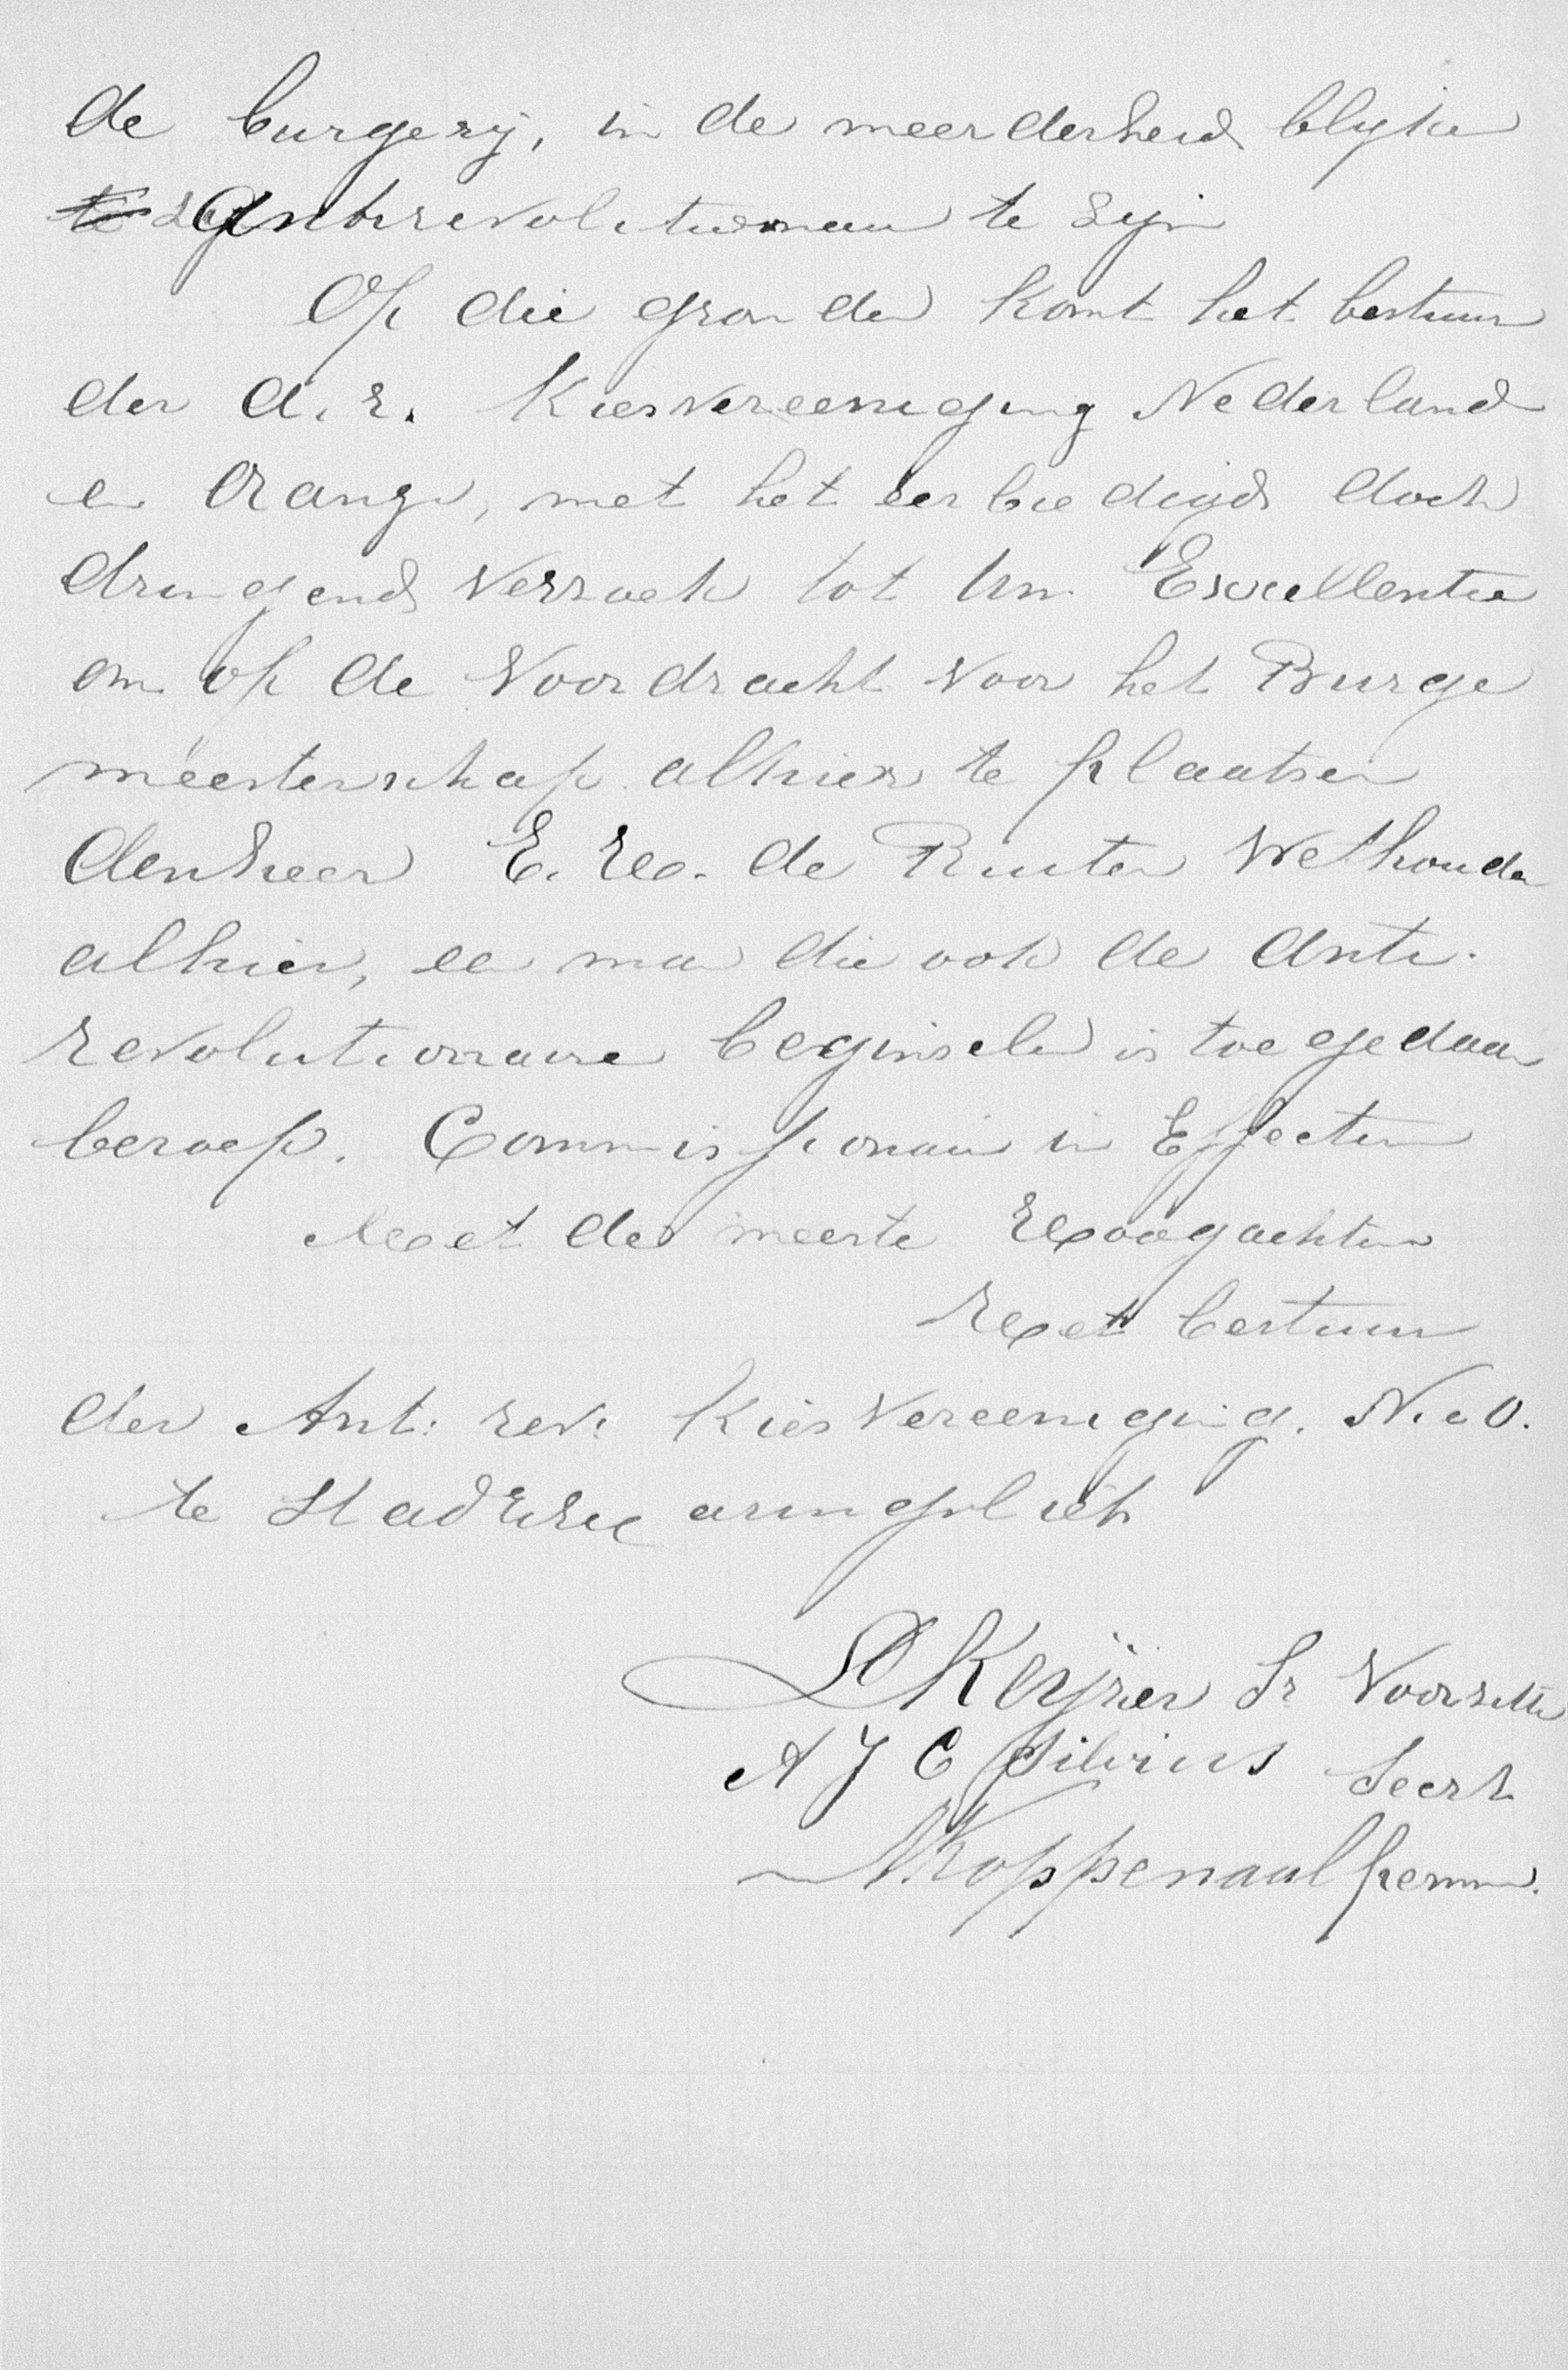 de burgerij, in de meerderheid blijken
te zijn Antirevolutionair te zijn
Op die gronden komt het bestuur
der A. R. Kiesvereeniging Nederland
en Oranje, met het eerbiedigd doch
dringend verzoek tot Uw Excellentie
om op de voordracht voor het Burge
meesterschap alhier te plaatsen
den heer E. H. de Ruiter Wethouder
alhier, een man die ook de Anti.
revolutionaire beginselen is toegedaan
beroep. Commissionair in Effecten
Met de meeste Hoogachten
Het bestuur
der Ant: rev: Kiesvereeniging. N. e O.
te Stad
Keijzer Sr Voorzitter
A J C Silvius Secrt
Koppenaal penm.